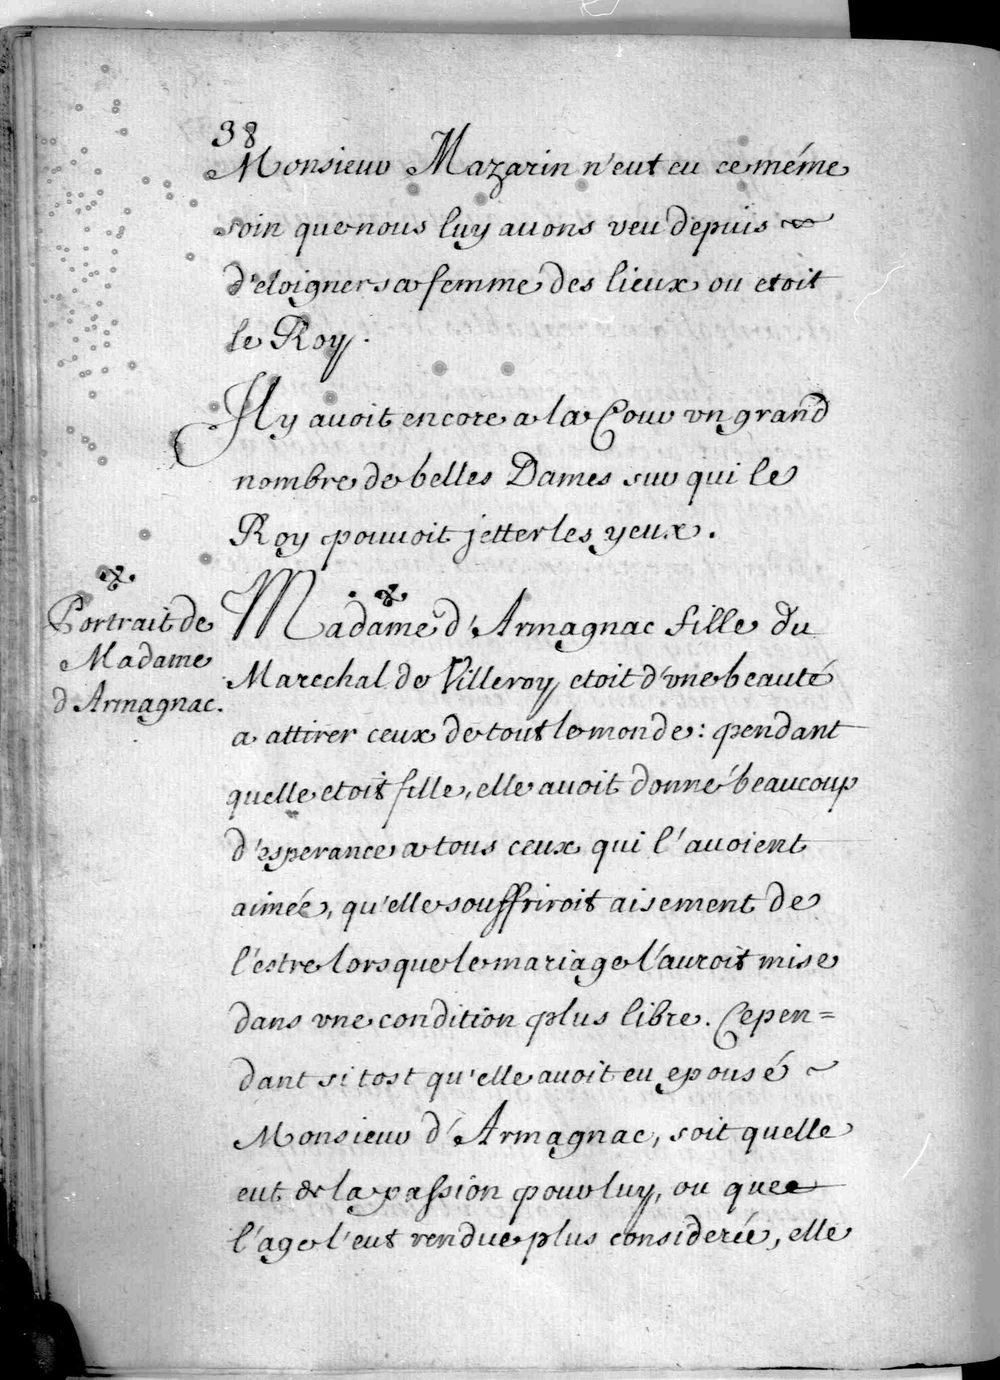 38
Monsieur Mazarin n'eut eu ce méme
soin que nous luy avons veu depuis
d'eloigner sa femme des lieux ou etoit
le Roy.
Il y avoit encore a la Cour un grand
nombre de belles Dames sur qui le
Roy pouvoit jetter les yeux.
Portrait de
Madame
d'Armagnac.
Madame d'Armagnac fille du
Marechal de Villeroy etoit d'une beauté
a attirer ceux de tout le monde: pendant
quelle etoit fille, elle avoit donné beaucoup
d'esperance a tous ceux qui l'avoient
aimée, qu'elle souffriroit aisement de
l'estre lorsque le mariage l'auroit mise
dans une condition plus libre. Cepen=
dant si tost qu'elle avoit eu epousé
Monsieur d'Armagnac, soit quelle
eut de la passion pour luy, ou que
l'age l'eut rendue plus considerée, elle